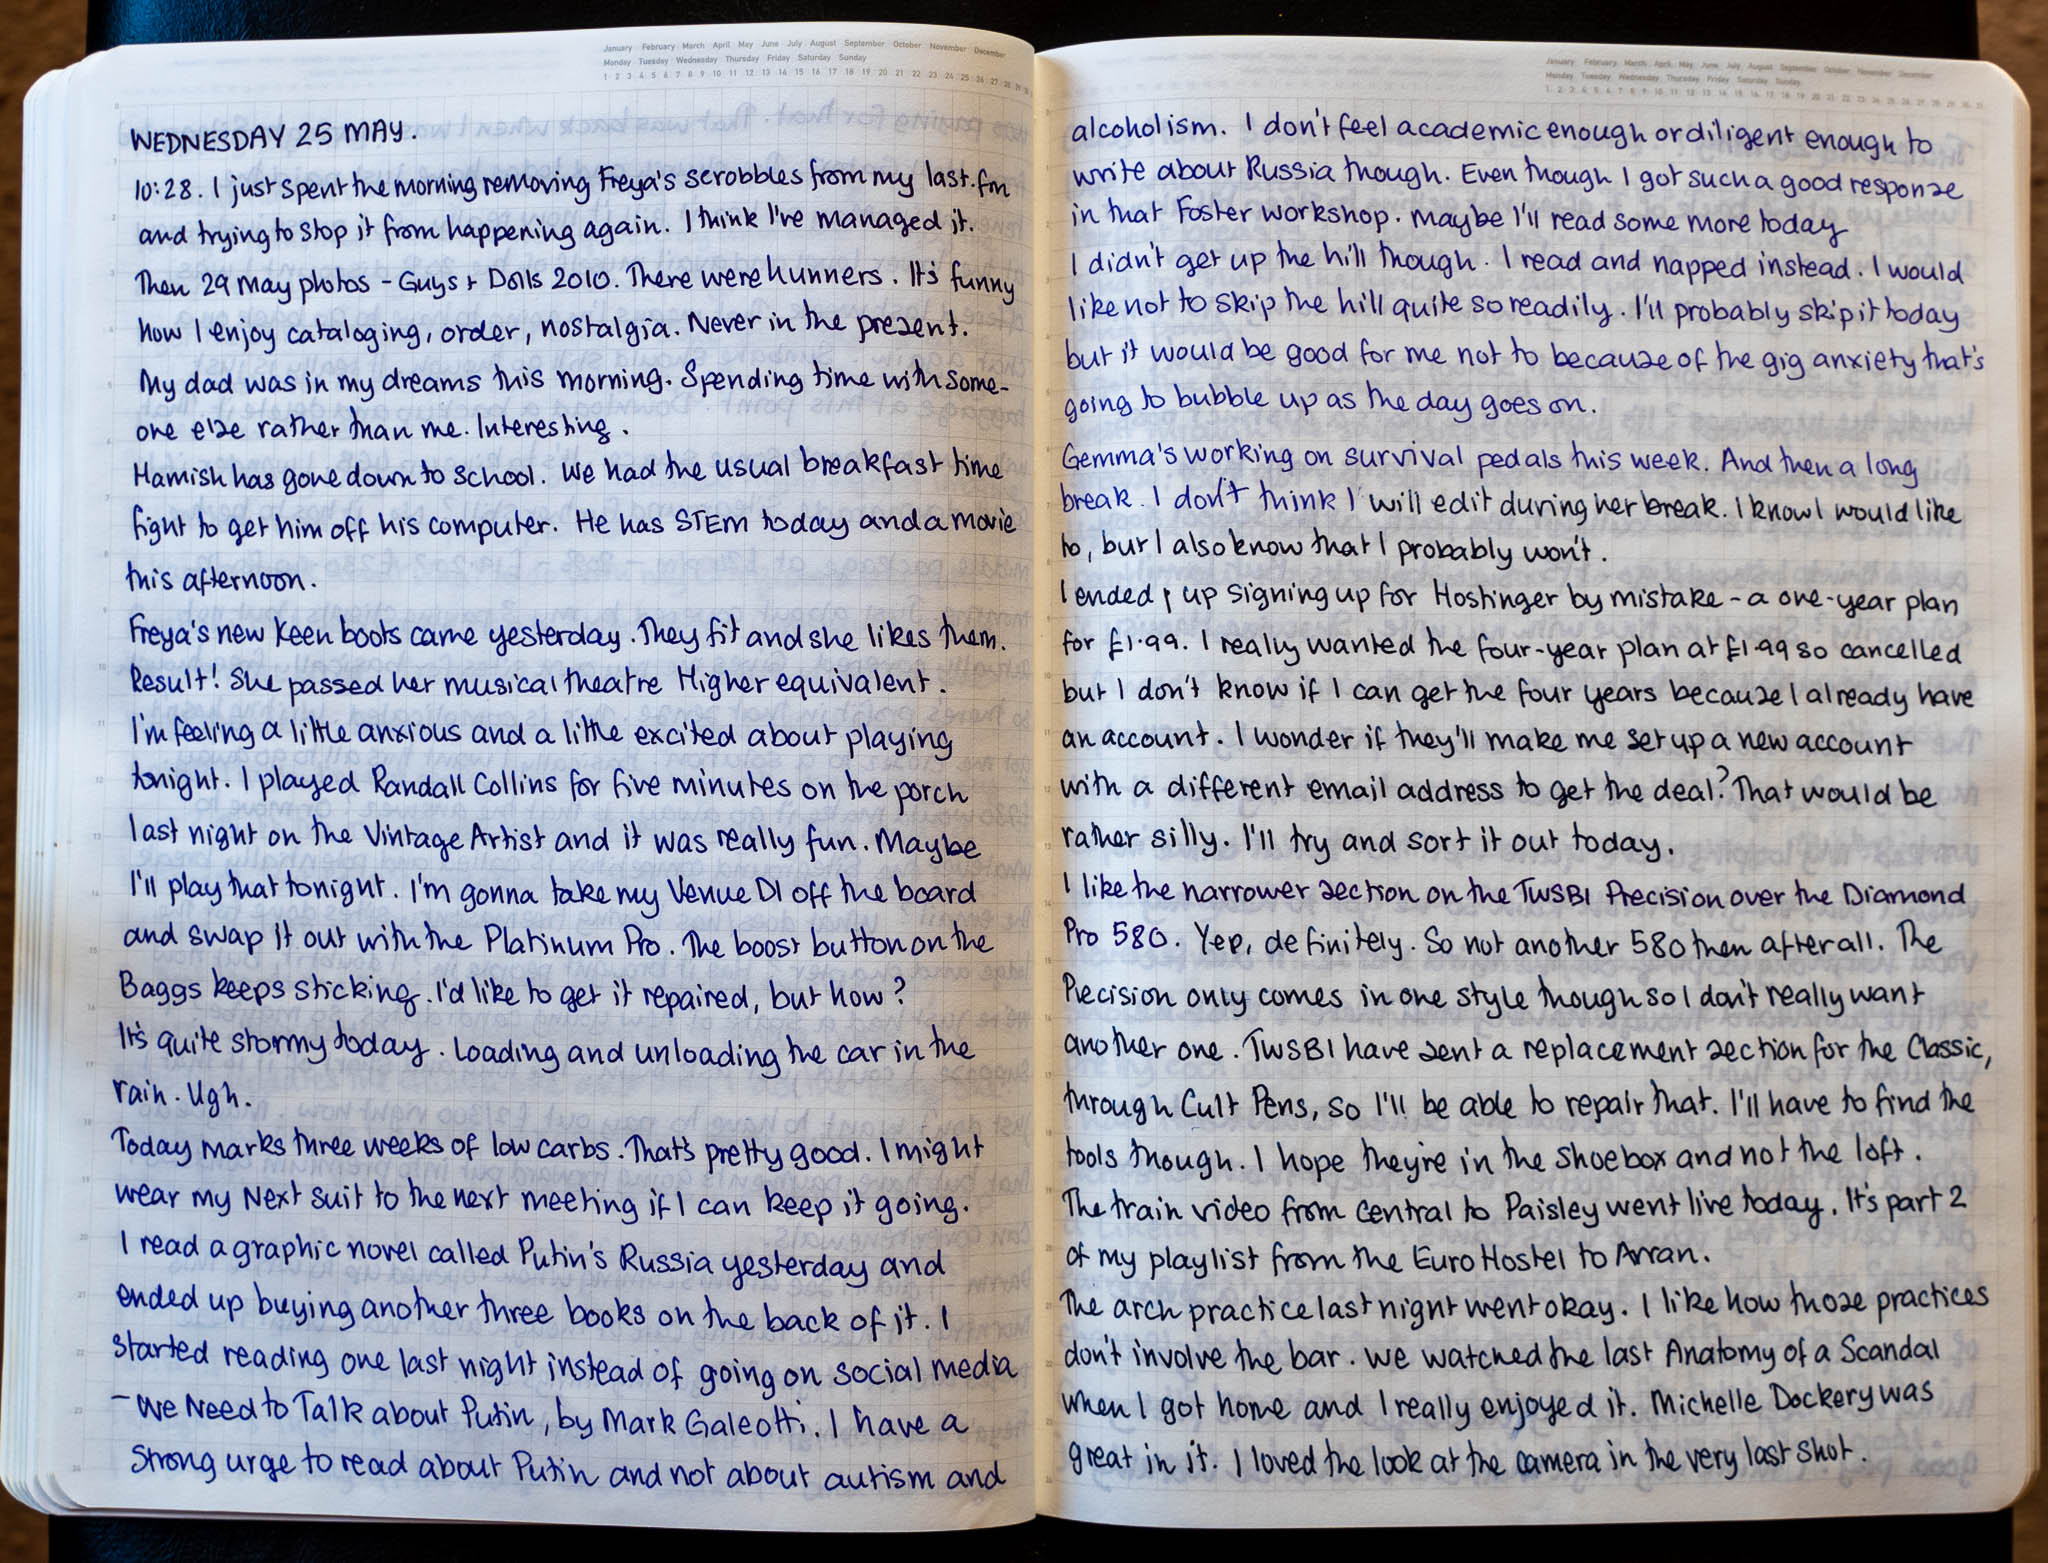 January February March April May June July August September October November December
Monday Tuesday Wednesday Thursday Friday Saturday Sunday
1 2 3 4 5 6 7 8 9 10 11 12 13 14 15 16 17 18 19 20 21 22 23 24 25 26 27 28 29 30 31
WEDNESDAY 25 MAY.
10:28. I just spent the morning removing Freya's scrobbles from my last.fm
and trying to stop it from happening again. I think I've managed it.
Then 29 May photos - Guys + Dolls 2010. There were hunners. It's funny
how I enjoy cataloging, order, nostalgia. Never in the present.
My dad was in my dreams this morning. Spending time with some-
one else rather than me. Interesting.
Hamish has gone down to school. We had the usual breakfast time
fight to get him off his computer. He has STEM today and a movie
this afternoon.
Freya's new Keen boots came yesterday. They fit and she likes them.
Result! She passed her musical theatre Higher equivalent.
I'm feeling a little anxious and a little excited about playing
tonight. I played Randall Collins for five minutes on the porch
last night on the Vintage Artist and it was really fun. Maybe
I'll play that tonight. I'm gonna take my Venue DI off the board
and swap it out with the Platinum Pro. The boost button on the
Baggs keeps sticking. I'd like to get it repaired, but how?
It's quite stormy today. Loading and unloading the car in the
rain. Ugh.
Today marks three weeks of low carbs. That's pretty good. I might
wear my Next suit to the next meeting if I can keep it going.
I read a graphic novel called Putin's Russia yesterday and
ended up buying another three books on the back of it. I
started reading one last night instead of going on social media
- We Need to Talk about Putin, by Mark Galeotti. I have a
strong urge to read about Putin and not about autism and
January February March April May June July August September October November December
Monday Tuesday Wednesday Thursday Friday Saturday Sunday
alcoholism. I don't feel academic enough or diligent enough to
write about Russia though. Even though I got such a good response
in that Foster workshop. Maybe I'll read some more today
I didn't get up the hill though. I read and napped instead. I would
like not to skip the hill quite so readily. I'll probably skip it today
but it would be good for me not to because of the gig anxiety that's
going to bubble up as the day goes on.
Gemma's working on survival pedals this week. And then a long
break. I don't think I will edit during her break. I know I would like
to, but I also know that I probably won't.
I ended up signing up for Hostinger by mistake - a one-year plan
for £1.99. I really wanted the four-year plan at £1.99 so cancelled
but I don't know if I can get the four years because I already have
an account. I wonder if they'll make me set up a new account
with a different email address to get the deal? That would be
rather silly. I'll try and sort it out today.
I like the narrower section on the TWSBI Precision over the Diamond
Pro 580. Yep, definitely. So not another 580 then after all. The
Precision only comes in one style though so I don't really want
another one. TWSBI have sent a replacement section for the Classic,
through Cult Pens, so I'll be able to repair that. I'll have to find the
tools though. I hope they're in the shoebox and not the loft.
The train video from Central to Paisley went live today. It's part 2
of my playlist from the Euro Hostel to Arran.
The arch practice last night went okay. I like how those practices
don't involve the bar. We watched the last Anatomy of a Scandal
when I got home and I really enjoyed it. Michelle Dockery was
great in it. I loved the look at the camera in the very last shot.